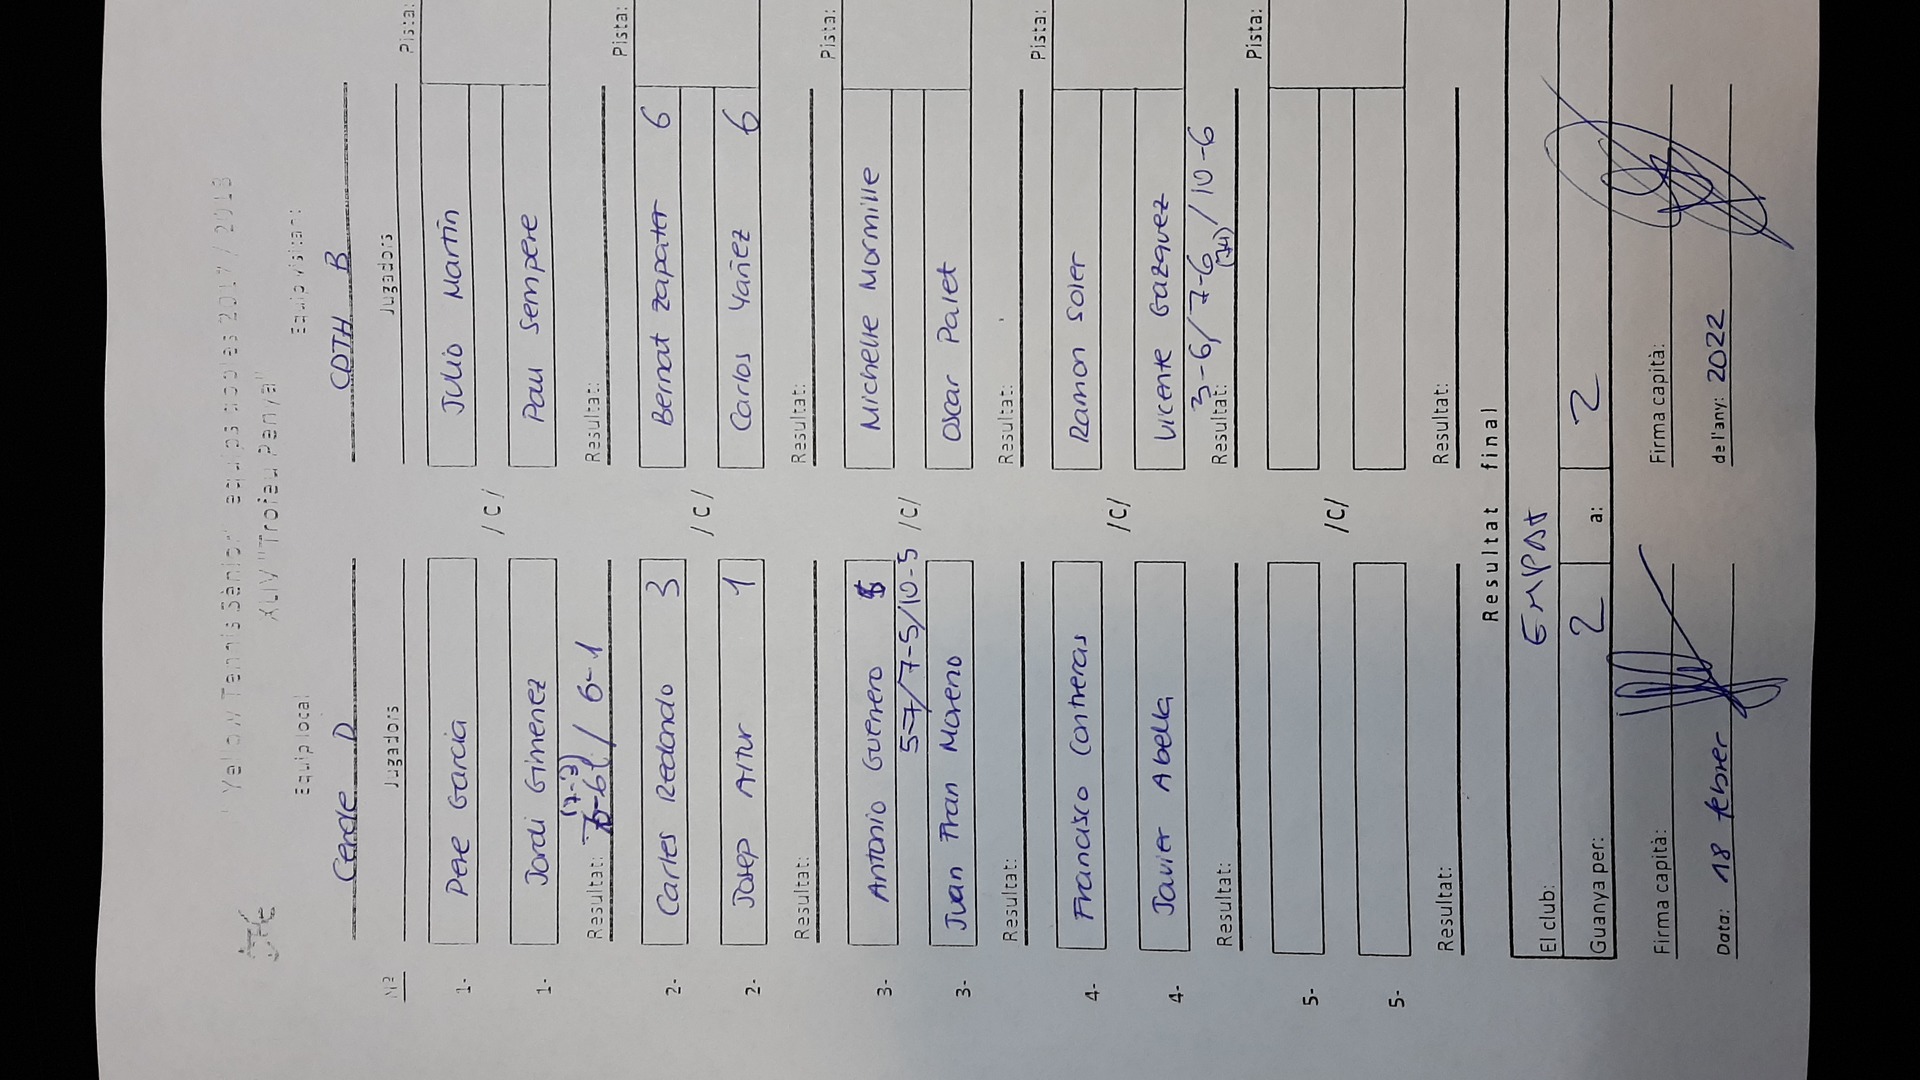 "Yellow Tennis Sènior" equips dobles 2017 / 2018
XLIV "Trofeu Penya"
Equip local Equip visitant:
Cercle D CDTH B
Nº Jugadors Jugadors Pista:
1- Pere Garcia Julio Martín
/C/
1- Jordi Gimenez Pau Sempere
(7-3)
Resultat: 7-6 / 6-1 Resultat: Pista:
2- Carles Redondo 3 Bernat Zapater 6
/C/
2- Josep Artur 1 Carlos Yañez 6
Resultat: Resultat: Pista:
3- Antonio Guerrero Michelle Mormille
5-7/7-5/10-5 /C/
3- Juan Fran Moreno Oscar Palet
Resultat: Resultat: Pista:
4- Francisco Contreras Ramon Soler
/C/
4- Javier Abella Vicente Gazquez
3-6/7-6/10-6
Resultat: Resultat: (7-4) Pista:
5-
/C/
5-
Resultat: Resultat:
Resultat final
El club: EMPAT
Guanya per: 2 a: 2
Firma capità: Firma capità:
Data: 18 febrer de l'any: 2022